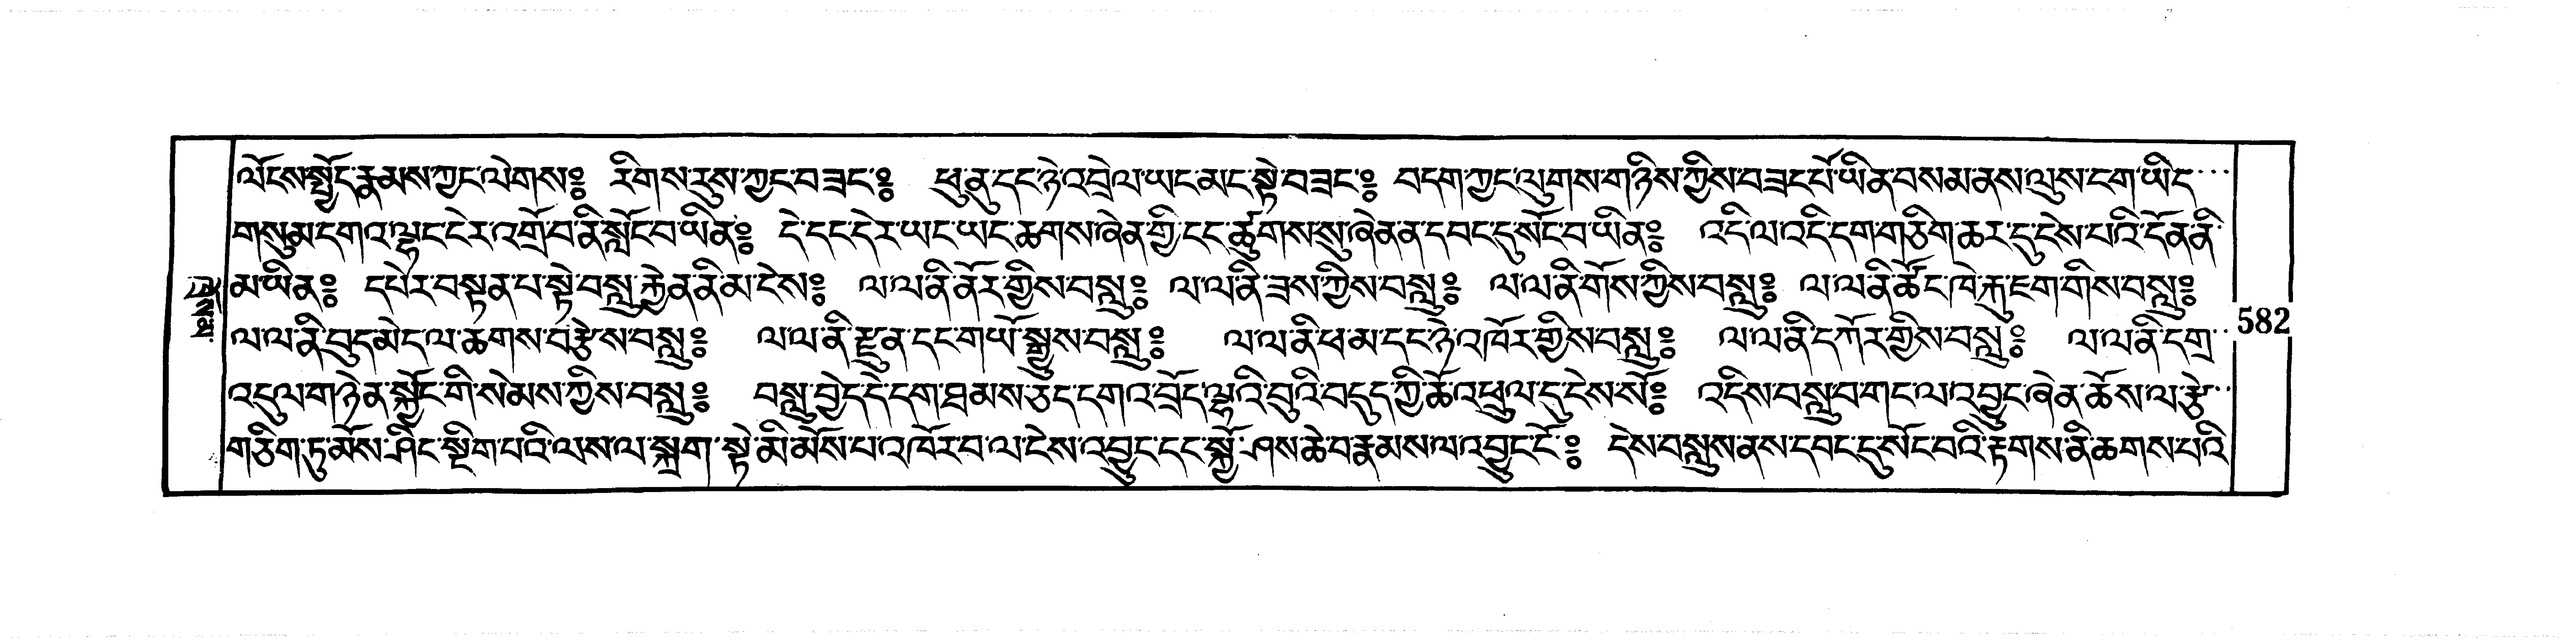 ལོངས་སྤྱོད་རྣམས་ཀྱང་ལེགས༔ རིགས་རུས་ཀྱང་བཟང་༔ ཕུ་ནུ་དང་ཉེ་འབྲེལ་ཡང་མང་སྟེ་བཟང་༔ བདག་ཀྱང་ལུགས་གཉིས་ཀྱིས་བཟང་པོ་ཡིན་བསམ་ནས་ལུས་ངག་ཡིད་...
གསུམ་དགའ་ལྷང་ངེར་འགྲོ་བ་ནི་སློང་བ་ཡིན༔ དེ་དང་དེར་ཡང་ཡང་ཆགས་ཞེན་གྱི་ངང་ཚུགས་སུ་ཞེན་ན་དབང་དུ་སོང་བ་ཡིན༔ འདི་ལ་འདི་དག་གཅིག་ཆར་དུ་ངེས་པའི་དོན་ནི་
མ་ཡིན༔ དཔེར་བསྟན་པ་སྟེ་བསླུ་རྐྱེན་ནི་མ་ངེས༔ ལ་ལ་ནི་ནོར་གྱིས་བསླུ༔ ལ་ལ་ནི་ཟས་ཀྱིས་བསླུ༔ ལ་ལ་ནི་གོས་ཀྱིས་བསླུ༔ ལ་ལ་ནི་ཚོང་ཁེ་རྐུ་ཇག་གིས་བསླུ༔
ལ་ལ་ནི་བུད་མེད་ལ་ཆགས་བརྩེས་བསླུ༔ ལ་ལ་ནི་རྫུན་དང་གཡོ་སྒྱུས་བསླུ༔ ལ་ལ་ནི་ཕ་མ་དང་ཉེ་འཁོར་གྱིས་བསླུ༔ ལ་ལ་ནི་དཀོར་གྱིས་བསླུ༔ ལ་ལ་ནི་དགྲ་..
འདུལ་གཉེན་སྐྱོང་གི་སེམས་ཀྱིས་བསླུ༔ བསླུ་བྱེད་དེ་དག་ཐམས་ཅད་དགའ་བྲོད་ལྷའི་བུའི་བདུད་ཀྱི་ཆོ་འཕྲུལ་དུ་ངེས་སོ༔ འདིས་བསླུ་བ་གང་ལ་འབྱུང་ཞེན་ཆོས་ལ་རྩེ་..
གཅིག་ཏུ་མོས་ཤིང་སྡིག་པའི་ལས་ལ་སྐྲག་སྟེ་མི་མོས་པ་འཁོར་བ་ལ་ངེས་འབྱུང་དང་སྐྱོ་ཤས་ཆེ་བ་རྣམས་ལ་འབྱུང་ངོ་༔ དེས་བསླུས་ནས་དབང་དུ་སོང་བའི་རྟགས་ནི་ཆགས་པའི་
582